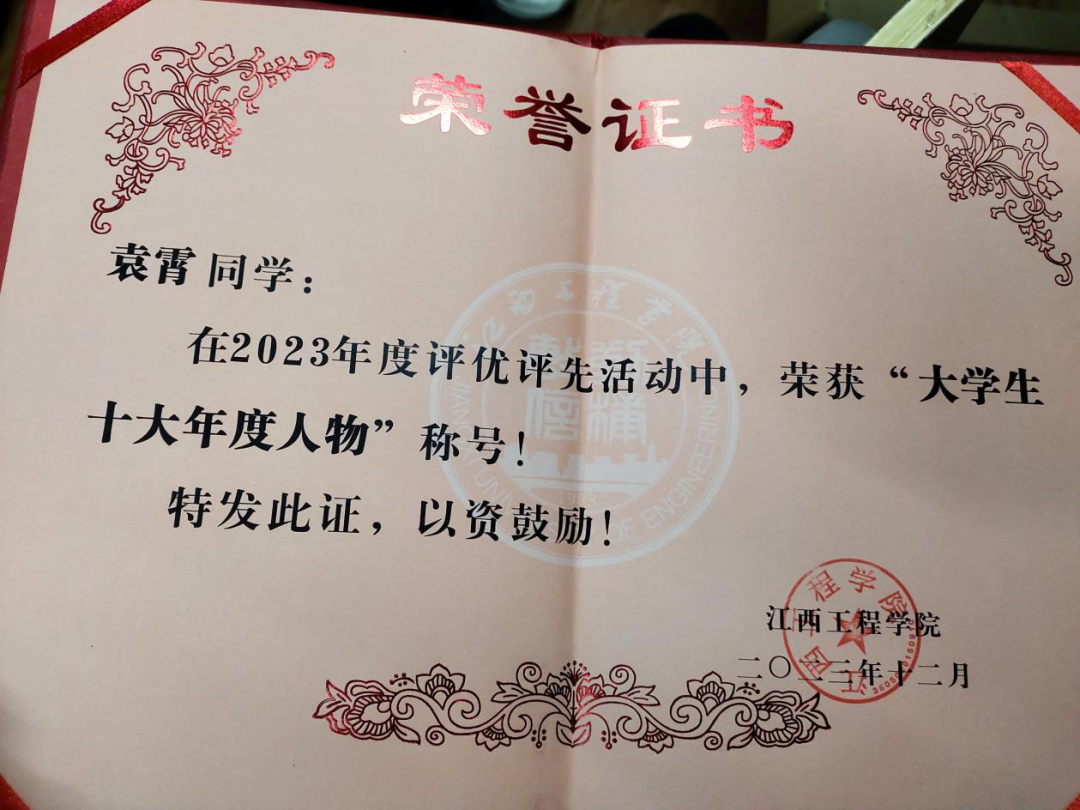 荣誉证书
袁霄同学：
在2023年度评优评先活动中，荣获“大学生
十大年度人物”称号！
特发此证，以资鼓励！
江西工程学院
二〇二三年十二月
江西工程学院
江西工程学院